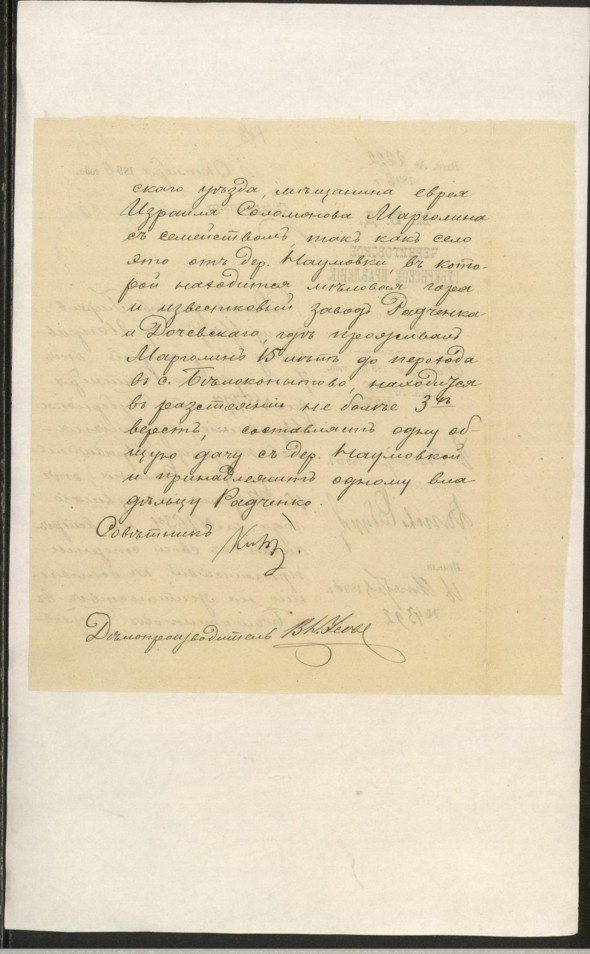 скаго уѣзда, мѣщанина еврея
Израиля Соломонова Марголина
съ семействомъ, такъ какъ село
это отъ дер. Наумовки, въ кото-
рой находится мѣловая гора
и известковый заводъ Радченка
и Дочевскаго, гдѣ проживалъ
Марголинъ 15 лѣтъ до перехода
въ с. Бѣлокопытово, находится
въ разстояніи не болѣе 3хъ
верстъ, составляетъ одну об-
щую дачу съ дер. Наумовкой
и принадлежитъ одному вла-
дѣльцу Радченко.
Совѣтникъ
Дѣлопроизводитель